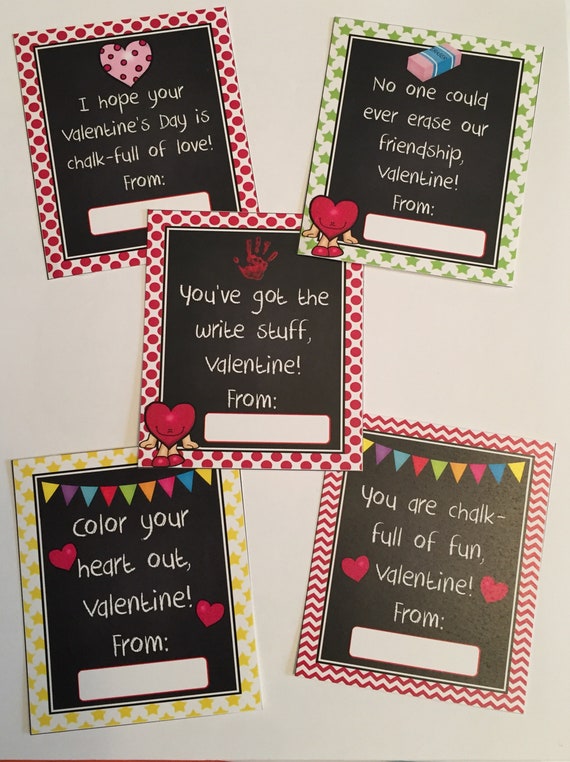 I hope your
Valentine's Day is
chalk-full of love!
From:
No one could
ever erase our
friendship,
Valentine!
From:
You've got the
write stuff,
Valentine!
From:
Color your
heart out,
Valentine!
From:
You are chalk-
full of fun,
Valentine!
From: